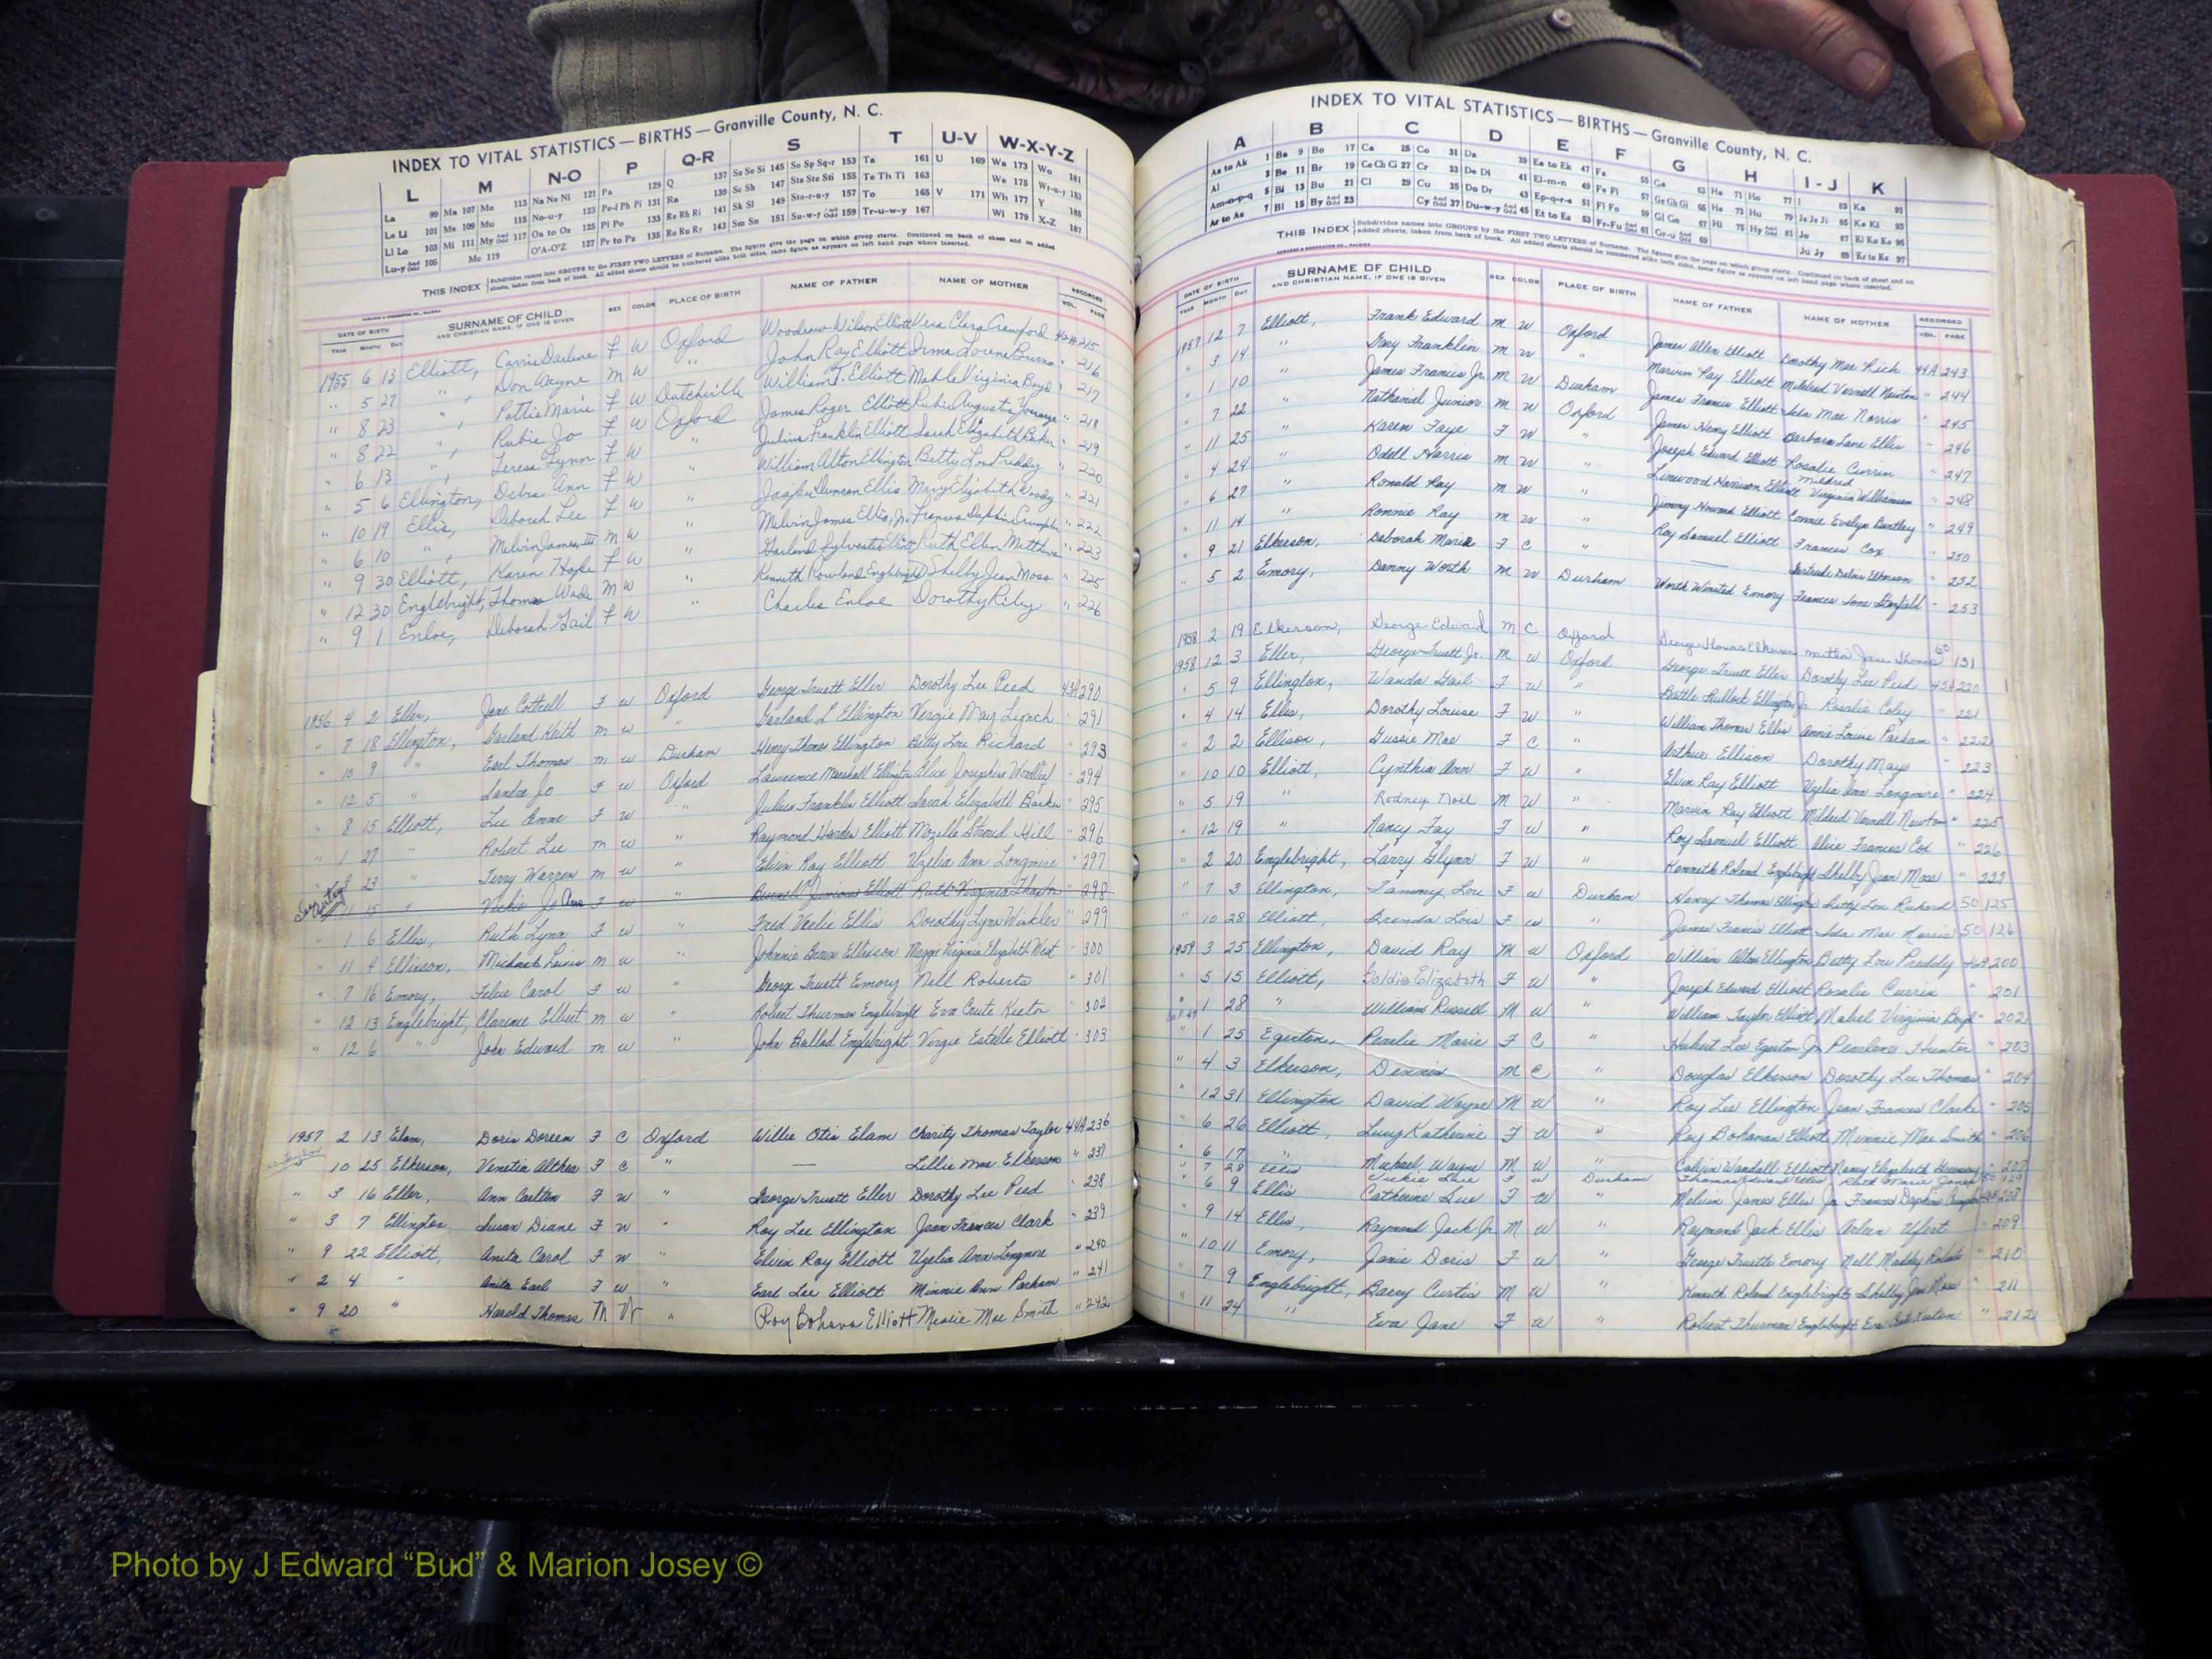 INDEX TO VITAL STATISTICS — BIRTHS — Granville County, N. C.
L M N-O P Q-R S T U-V W-X-Y-Z
La 99 Ma 107 Mo 113 Na Ne Ni 121 Pa 129 Q 137 Sa Se Si 145 So Sp Sq-r 153 Ta 161 U 169 Wa 173 Wo 181
Le Li 101 Me 109 Mu 115 No-u-y 123 Pe-f Ph Pi 131 Ra 139 Sc Sh 147 Sta Ste Sti 155 Te Th Ti 163 We 175 Wr-u-y 183
Ll Lo 103 Mi 111 My 117 Oa to Oz 125 Pl Po 133 Re Rh Ri 141 Sk Sl 149 Sto-r-u-y 157 To 165 V 171 Wh 177 Y 185
Lu-y 105 Mc 119 O'A-O'Z 127 Pr to Pz 135 Ro Ru Ry 143 Sm Sn 151 Su-w-y 159 Tr-u-w-y 167 Wi 179 X-Z 187
THIS INDEX Subdivides names into GROUPS by the FIRST TWO LETTERS of Surname. The figures give the page on which group starts. Continued on back of sheet and on added
sheets, taken from back of book. All added sheets should be numbered alike both sides, same figure as appears on left hand page where inserted.
DATE OF BIRTH SURNAME OF CHILD SEX COLOR PLACE OF BIRTH NAME OF FATHER NAME OF MOTHER RECORDED
YEAR MONTH DAY AND CHRISTIAN NAME, IF ONE IS GIVEN VOL. PAGE
1955 6 13 Elliott, Carrie Darlene F W Oxford Woodrow Wilson Elliott Vera Clara Crawford 42A 215
" 5 27 " Don Wayne M W " John Ray Elliott Irma Lorene Burns " 216
" 8 23 " Pattie Marie F W Dutchville William T. Elliott Mable Virginia Boyd " 217
" 8 22 " Rubie Jo F W Oxford James Roger Elliott Rubie Augustus " 218
" 6 13 " Teresa Lynn F W " Julius Franklin Elliott Sarah Elizabeth Baker " 219
" 5 6 Ellington, Debra Ann F W William Alton Ellington Betty Lou Preddy " 220
" 10 19 Ellis, Deborah Lee F W " Jasper Duncan Ellis Mary Elizabeth " 221
" 6 10 " Melvin James, III M W Melvin James Ellis, Jr. Frances Daphine Crumpler " 222
" 9 30 Elliott, Karen Hope F W " Garland Sylvester Elliott Ruth Ellen Matthews " 223
" 12 30 Englebright, Thomas Wade M W Kenneth Rowland Englebright Shelby Jean Moss " 225
" 9 1 Enloe, Deborah Gail F W " Charles Enloe Dorothy Riley " 226
1956 4 2 Eller, Jane Cottrell F W Oxford George Truett Eller Dorothy Lee Peed 43A 290
" 7 18 Ellington, Garland Keith M W " Garland L Ellington Vergie May Lynch " 291
" 10 9 " Earl Thomas M W Durham Henry Thomas Ellington Betty Lou Richard " 293
" 12 5 " Sandra Jo F W Oxford Lawrence Marshall Ellington Alice Josephine " 294
" 8 15 Elliott, Lu Anne F W " Julius Franklin Elliott Sarah Elizabeth Baker " 295
" 1 27 " Robert Lee M W " Raymond Elliott Mozelle Stroud Hill " 296
" 23 " Terry Warren M W " Elvin Ray Elliott Uzelia Ann Longmire " 297
11 15 " Vickie Jo Ann F W " Elliott Ruth Virginia " 298
" 1 6 Ellis, Ruth Lynn F W " Fred Ellis Dorothy Lynn Winkler " 299
" 11 4 Ellixson, Michael Lewis M W " Johnnie Brown Ellixson Maggie Virginia Elizabeth West " 300
" 7 16 Emory, Felice Carol F W " George Truett Emory Nell Roberts " 301
" 12 13 Englebright, Clarence Elbert M W " Robert Thurman Englebright Eva Crute Keeton " 302
" 12 6 " John Edward M W " John Ballad Englebright Virgie Estelle Elliott " 303
1957 2 13 Elam, Doris Doreen F C Oxford Willie Otis Elam Charity Thomas Taylor 44A 236
" 10 25 Elkerson, Venetia Althea F C " — Lillie Mae Elkerson " 237
" 3 16 Eller, Ann Carlton F W " George Truett Eller Dorothy Lee Peed " 238
" 3 7 Ellington Susan Diane F W " Roy Lee Ellington Jean Frances Clark " 239
" 9 22 Elliott, Anita Carol F W " Elvin Roy Elliott Uzelia Ann Longmire " 240
" 2 4 " Anita Earl F W " Earl Lee Elliott Minnie Ann Parham " 241
" 9 20 " Harold Thomas M W " Roy Bohana Elliott Mae Smith " 242
INDEX TO VITAL STATISTICS — BIRTHS — Granville County, N. C.
A B C D E F G H I-J K
Aa to Ak 1 Ba 9 Bo 17 Ca 25 Co 31 Da 39 Ea to Ek 47 Fa 55 Ga 63 Ha 71 Ho 77 I 83 Ka 91
Al 3 Be 11 Br 19 Ce Ch Ci 27 Cr 33 De Di 41 El-m-n 49 Fe Fi 57 Ge Gh Gi 65 He 73 Hu 79 Ja Je Ji 85 Ke Ki 93
Am-o-p-q 5 Bi 13 Bu 21 Cl 29 Cu 35 Do Dr 43 Ep-q-r-s 51 Fl Fo 59 Gl Go 67 Hi 75 Hy 81 Jo 87 Kl Kn Ko 95
Ar to Az 7 Bl 15 By 23 Cy 37 Du-w-y 45 Et to Ez 53 Fr-Fu 61 Gr-u 69 Ju Jy 89 Kr to Kz 97
THIS INDEX Subdivides names into GROUPS by the FIRST TWO LETTERS of Surname. The figures give the page on which group starts. Continued on back of sheet and on
added sheets, taken from back of book. All added sheets should be numbered alike both sides, same figure as appears on left hand page where inserted.
DATE OF BIRTH SURNAME OF CHILD SEX COLOR PLACE OF BIRTH NAME OF FATHER NAME OF MOTHER RECORDED
YEAR MONTH DAY AND CHRISTIAN NAME, IF ONE IS GIVEN VOL. PAGE
1957 12 7 Elliott, Frank Edward M W Oxford James Allen Elliott Dorothy Mae Rich 44A 243
" 3 14 " Gary Franklin M W " Marvin Ray Elliott Mildred Vernell Newton " 244
" 1 10 " James Francis Jr M W Durham James Francis Elliott Ida Mae Norris " 245
" 7 22 " Nathanial Junior M W Oxford James Henry Elliott Barbara Lane Ellis " 246
" 11 25 " Karen Faye F W " Joseph Edward Elliott Rosalie Currin " 247
" 4 24 " Odell Harris M W " Linwood Harrison Elliott Mildred Virginia Williamson " 248
" 6 27 " Ronald Ray M W " Jimmy Howard Elliott Connie Evelyn Bentley " 249
" 11 14 " Ronnie Ray M W " Roy Samuel Elliott Frances Cox " 250
" 9 21 Elkerson, Deborah Marie F C " — Gertrude Elkerson " 252
" 5 2 Emory, Danny Worth M W Durham Worth Winsted Emory Frances Ione " 253
1958 2 19 Elkerson, George Edward M C Oxford George Thomas Elkerson Martha Jane Thomas 60 131
1958 12 3 Eller, George Truett Jr. M W Oxford George Truett Eller Dorothy Lee Peed 45A 220
" 5 9 Ellington, Wanda Gail F W " Battle Bullock Ellington Jr Rosalie Coley " 221
" 4 14 Ellis, Dorothy Louise F W " William Thomas Ellis Annie Louise Parham " 222
" 2 2 Ellison, Gussie Mae F C " Arthur Ellison Dorothy Mays " 223
" 10 10 Elliott, Cynthia Ann F W " Elvin Ray Elliott Uzelia Ann Longmire " 224
" 5 19 " Rodney Noel M W " Marvin Ray Elliott Mildred Vernell Newton " 225
" 12 19 " Nancy Fay F W " Roy Samuel Elliott Alice Frances Cox " 226
" 2 20 Englebright, Larry Glynn F W " Kenneth Roland Englebright Shelby Jean Moss " 227
" 7 3 Ellington, Tammy Lou F W Durham Henry Thomas Ellington Betty Lou Richard 50 125
" 10 28 Elliott, Brenda Lois F W " James Francis Elliott Ida Mae Norris 50 126
1959 3 25 Ellington, David Ray M W Oxford William Alton Ellington Betty Lou Preddy 46A 200
" 5 15 Elliott, Goldie Elizabeth F W " Joseph Edward Elliott Rosalie Currin " 201
" 1 28 " William Russell M W William Taylor Elliott Mabel Virginia Boyd " 202
" 1 25 Egerton, Pearlie Marie F C " Hubert Lee Egerton Jr Pearlene Hunter " 203
" 4 3 Elkerson, Dennis M C Douglas Elkerson Dorothy Lee Thomas " 204
" 12 31 Ellington David Wayne M W " Roy Lee Ellington Jean Frances Clarke " 205
" 6 26 Elliott, Lucy Katherine F W " Roy Bohanan Elliott Minnie Mae Smith " 206
" 6 17 " Michael Wayne M W " Calvin Wandall Elliott Nancy Elizabeth " 207
" 7 28 Ellis Vickie F W Durham Thomas Edward Ellis Ruth Marie Jones 50 129
" 6 9 Ellis Catherine Sue F W " Melvin James Ellis Jr Frances Daphine 208
" 9 14 Ellis, Raymond Jack Jr M W " Raymond Jack Ellis Arleen Ufert " 209
" 10 11 Emory, Janie Doris F W " George Truette Emory Nell Roberts " 210
" 7 9 Englebright, Barry Curtis M W " Kenneth Roland Englebright Shelby Jean Moss " 211
" 11 24 " Eva Jane F W " Robert Thurman Englebright Eva Keeton " 212
Photo by J Edward “Bud” & Marion Josey ©